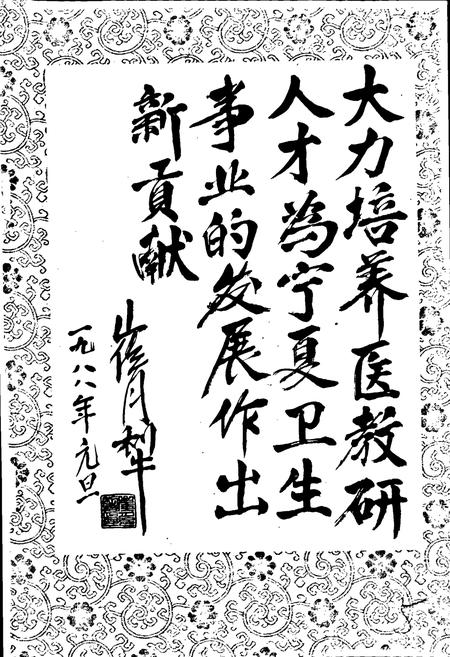 大力培养医教研
人才为宁夏卫生
事业的发展作出
新贡献
崔月犁
一九八八年元旦